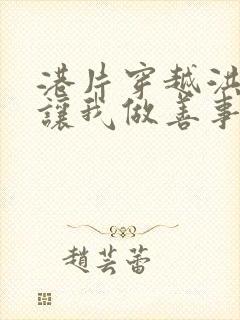 港片穿越洪
讓我做善事
趙芸蕾